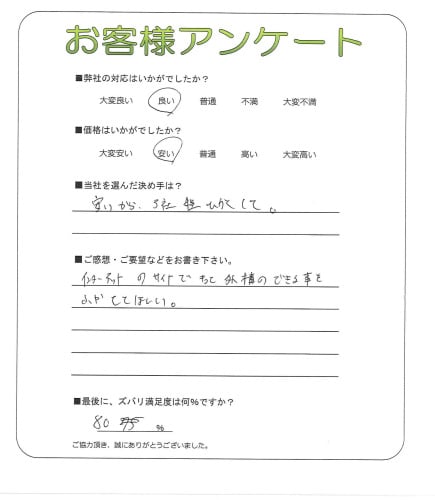 お客様アンケート
■弊社の対応はいかがでしたか?
大変良い 良い 普通 不満 大変不満
■価格はいかがでしたか?
大変安い 安い 普通 高い 大変高い
■当社を選んだ決め手は?
安いから、3社 して。
■ご感想・ご要望などをお書き下さい。
インターネットのサイトで もっと 外構のできる事を
ふやしてほしい。
■最後に、ズバリ満足度は何%ですか?
80 %
ご協力頂き、誠にありがとうございました。